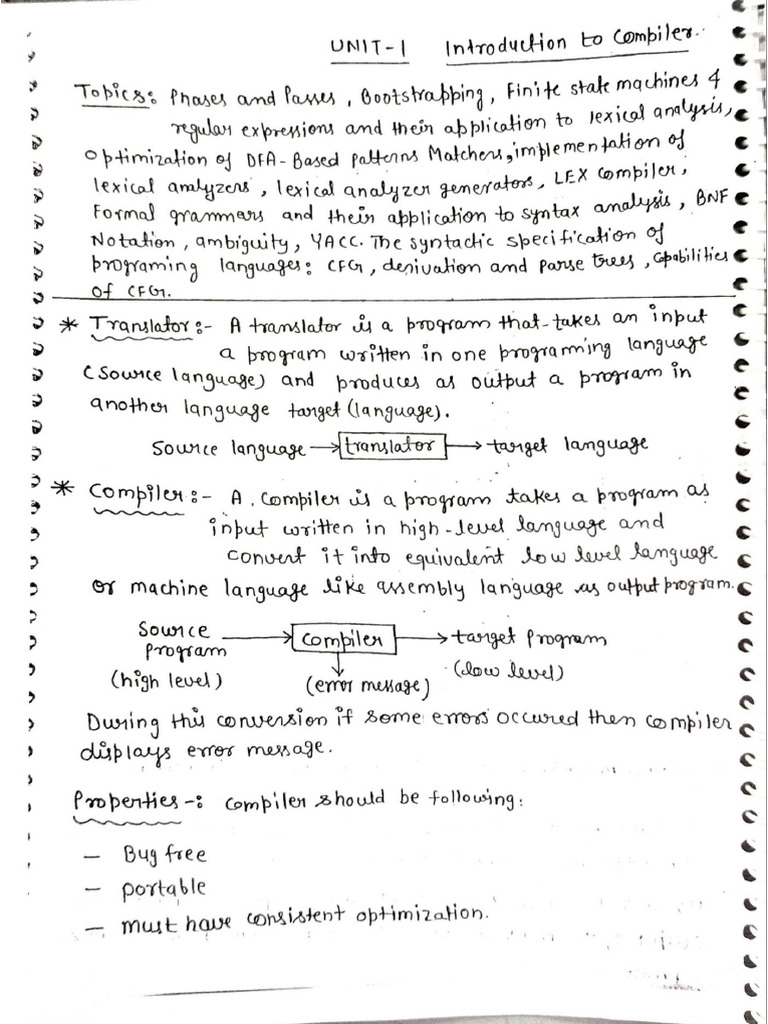 UNIT-1 Introduction to Compiler.
Topics: Phases and Passes, Bootstrapping, Finite state machines &
regular expressions and their application to lexical analysis,
Optimization of DFA-Based patterns Matchers, implementation of
lexical analyzers, lexical analyzer generators, LEX compiler,
Formal grammers and their application to syntax analysis, BNF
Notation, ambiguity, YACC. The syntactic specification of
programing languages: CFG, derivation and parse trees, capabilities
of CFG.
* Translator:- A translator is a program that takes an input
a program written in one programing language
(source language) and produces as output a program in
another language target (language).
Source language → translator → target language
* Compiler:- A compiler is a program takes a program as
input written in high-level language and
convert it into equivalent low level language
or machine language like assembly language as output program.
Source Program (high level) → Compiler → target program (low level)
(error message)
During this conversion if some errors occured then compiler
displays error message.
Properties-: Compiler should be following:
- Bug free
- portable
- must have consistent optimization.